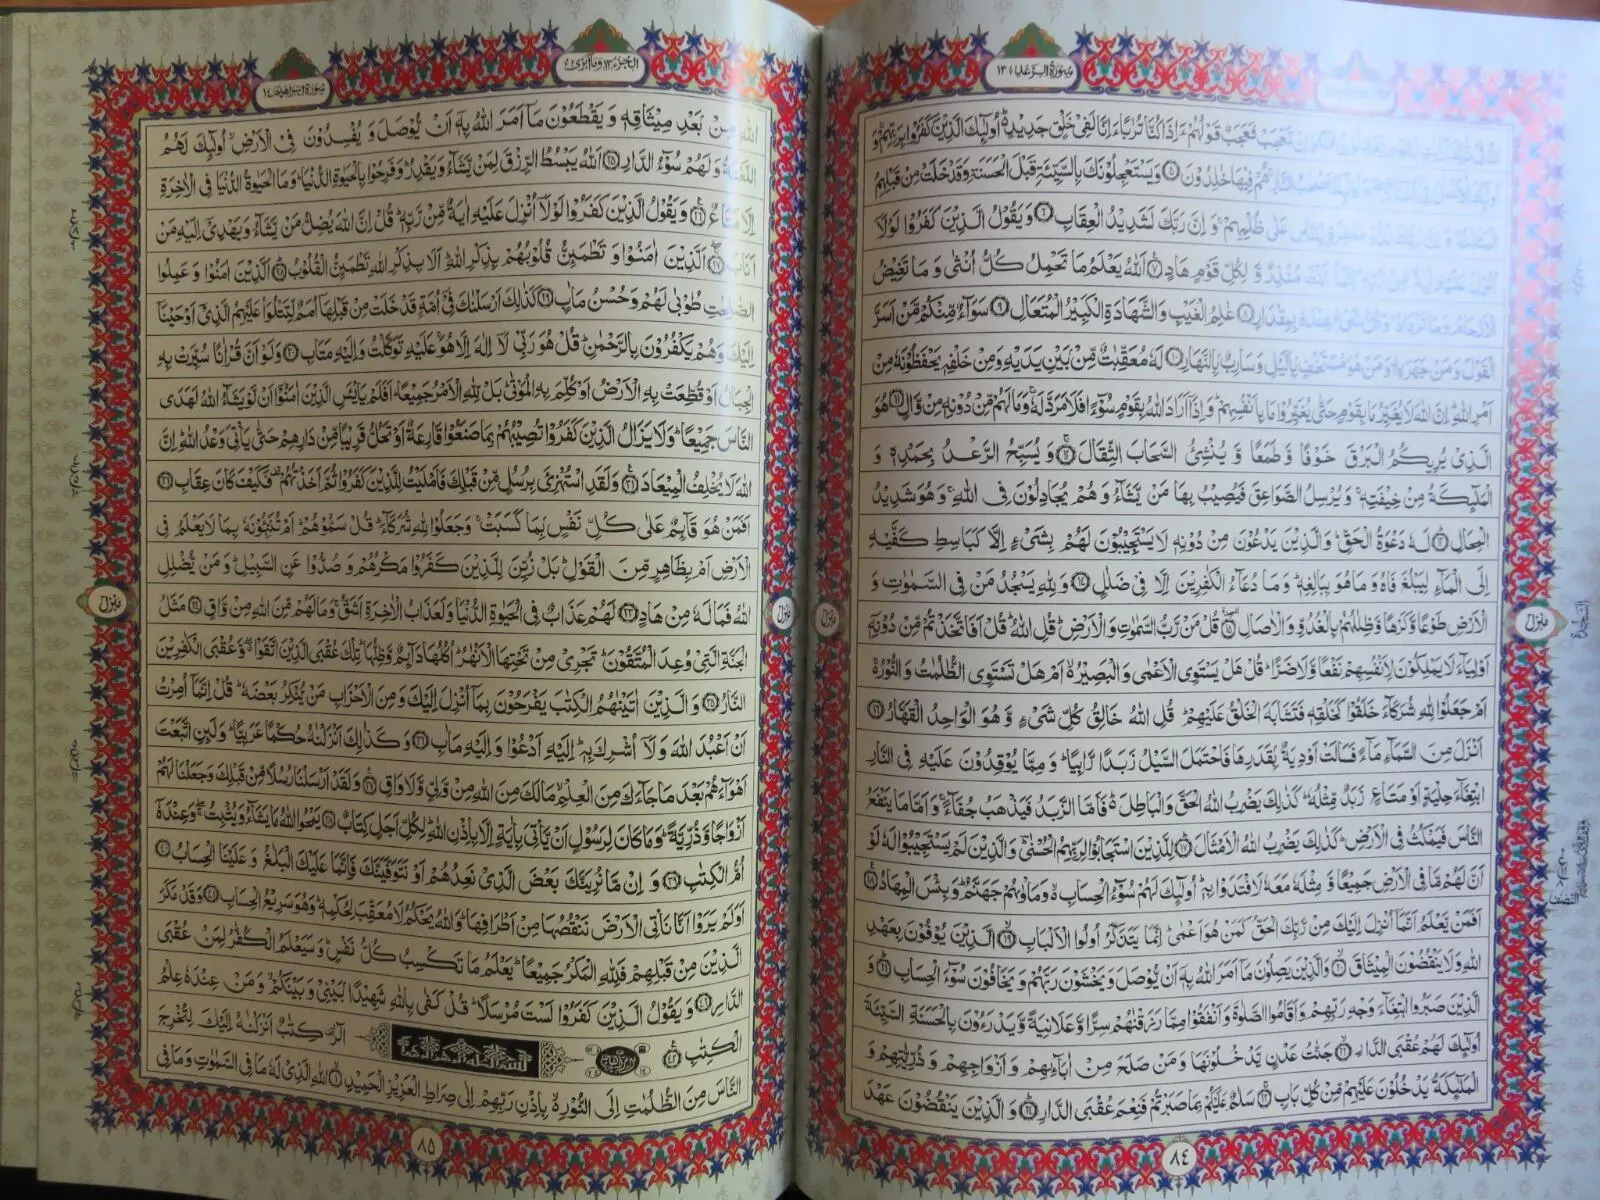 سُوْرَةُ الرَّعْدِ ١٣
تَعْجَبْ فَعَجَبٌ قَوْلُهُمْ ءَاِذَا كُنَّا تُرٰبًا ءَاِنَّا لَفِىْ خَلْقٍ جَدِيْدٍ ؕ اُولٰٓئِكَ الَّذِيْنَ كَفَرُوْا بِرَبِّهِمْ ۚ وَ
هُمْ فِيْهَا خٰلِدُوْنَ ۝٥ وَيَسْتَعْجِلُوْنَكَ بِالسَّيِّئَةِ قَبْلَ الْحَسَنَةِ وَقَدْ خَلَتْ مِنْ قَبْلِهِمُ
لِّلنَّاسِ عَلٰى ظُلْمِهِمْ ۚ وَ اِنَّ رَبَّكَ لَشَدِيْدُ الْعِقَابِ ۝٦ وَيَقُوْلُ الَّذِيْنَ كَفَرُوْا لَوْلَآ
اُنْزِلَ عَلَيْهِ اٰيَةٌ مِّنْ رَّبِّهٖ ؕ اِنَّمَآ اَنْتَ مُنْذِرٌ وَّ لِكُلِّ قَوْمٍ هَادٍ ۝٧ اَللّٰهُ يَعْلَمُ مَا تَحْمِلُ كُلُّ اُنْثٰى وَ مَا تَغِيْضُ
الْاَرْحَامُ وَمَا تَزْدَادُ ؕ وَكُلُّ شَىْءٍ عِنْدَهٗ بِمِقْدَارٍ ۝٨ عٰلِمُ الْغَيْبِ وَالشَّهَادَةِ الْكَبِيْرُ الْمُتَعَالِ ۝٩ سَوَآءٌ مِّنْكُمْ مَّنْ اَسَرَّ
الْقَوْلَ وَمَنْ جَهَرَ بِهٖ وَمَنْ هُوَ مُسْتَخْفٍۭ بِالَّيْلِ وَسَارِبٌۢ بِالنَّهَارِ ۝١٠ لَهٗ مُعَقِّبٰتٌ مِّنْۢ بَيْنِ يَدَيْهِ وَمِنْ خَلْفِهٖ يَحْفَظُوْنَهٗ مِنْ
اَمْرِ اللّٰهِ ؕ اِنَّ اللّٰهَ لَا يُغَيِّرُ مَا بِقَوْمٍ حَتّٰى يُغَيِّرُوْا مَا بِاَنْفُسِهِمْ ؕ وَاِذَآ اَرَادَ اللّٰهُ بِقَوْمٍ سُوْٓءًا فَلَا مَرَدَّ لَهٗ ۚ وَمَا لَهُمْ مِّنْ دُوْنِهٖ مِنْ وَّالٍ ۝١١ هُوَ
الَّذِىْ يُرِيْكُمُ الْبَرْقَ خَوْفًا وَّ طَمَعًا وَّ يُنْشِئُ السَّحَابَ الثِّقَالَ ۝١٢ وَ يُسَبِّحُ الرَّعْدُ بِحَمْدِهٖ وَ
الْمَلٰٓئِكَةُ مِنْ خِيْفَتِهٖ ۚ وَ يُرْسِلُ الصَّوَاعِقَ فَيُصِيْبُ بِهَا مَنْ يَّشَآءُ وَ هُمْ يُجَادِلُوْنَ فِى اللّٰهِ ۚ وَهُوَ شَدِيْدُ
الْمِحَالِ ۝١٣ لَهٗ دَعْوَةُ الْحَقِّ ؕ وَالَّذِيْنَ يَدْعُوْنَ مِنْ دُوْنِهٖ لَا يَسْتَجِيْبُوْنَ لَهُمْ بِشَىْءٍ اِلَّا كَبَاسِطِ كَفَّيْهِ
اِلَى الْمَآءِ لِيَبْلُغَ فَاهُ وَمَا هُوَ بِبَالِغِهٖ ؕ وَ مَا دُعَآءُ الْكٰفِرِيْنَ اِلَّا فِىْ ضَلٰلٍ ۝١٤ وَلِلّٰهِ يَسْجُدُ مَنْ فِى السَّمٰوٰتِ وَ
الْاَرْضِ طَوْعًا وَّكَرْهًا وَّظِلٰلُهُمْ بِالْغُدُوِّ وَالْاٰصَالِ ۝١٥ قُلْ مَنْ رَّبُّ السَّمٰوٰتِ وَالْاَرْضِ ؕ قُلِ اللّٰهُ ؕ قُلْ اَفَاتَّخَذْتُمْ مِّنْ دُوْنِهٖٓ
اَوْلِيَآءَ لَا يَمْلِكُوْنَ لِاَنْفُسِهِمْ نَفْعًا وَّلَا ضَرًّا ؕ قُلْ هَلْ يَسْتَوِى الْاَعْمٰى وَالْبَصِيْرُ ۙ اَمْ هَلْ تَسْتَوِى الظُّلُمٰتُ وَالنُّوْرُ ۚ
اَمْ جَعَلُوْا لِلّٰهِ شُرَكَآءَ خَلَقُوْا كَخَلْقِهٖ فَتَشَابَهَ الْخَلْقُ عَلَيْهِمْ ؕ قُلِ اللّٰهُ خَالِقُ كُلِّ شَىْءٍ وَّ هُوَ الْوَاحِدُ الْقَهَّارُ ۝١٦
اَنْزَلَ مِنَ السَّمَآءِ مَآءً فَسَالَتْ اَوْدِيَةٌۢ بِقَدَرِهَا فَاحْتَمَلَ السَّيْلُ زَبَدًا رَّابِيًا ؕ وَ مِمَّا يُوْقِدُوْنَ عَلَيْهِ فِى النَّارِ
ابْتِغَآءَ حِلْيَةٍ اَوْ مَتَاعٍ زَبَدٌ مِّثْلُهٗ ؕ كَذٰلِكَ يَضْرِبُ اللّٰهُ الْحَقَّ وَالْبَاطِلَ ؕ۬ فَاَمَّا الزَّبَدُ فَيَذْهَبُ جُفَآءً ۚ وَاَمَّا مَا يَنْفَعُ
النَّاسَ فَيَمْكُثُ فِى الْاَرْضِ ؕ كَذٰلِكَ يَضْرِبُ اللّٰهُ الْاَمْثَالَ ۝١٧ لِلَّذِيْنَ اسْتَجَابُوْا لِرَبِّهِمُ الْحُسْنٰى ؔؕ وَالَّذِيْنَ لَمْ يَسْتَجِيْبُوْا لَهٗ لَوْ
اَنَّ لَهُمْ مَّا فِى الْاَرْضِ جَمِيْعًا وَّ مِثْلَهٗ مَعَهٗ لَافْتَدَوْا بِهٖ ؕ اُولٰٓئِكَ لَهُمْ سُوْٓءُ الْحِسَابِ ۙ وَمَاْوٰىهُمْ جَهَنَّمُ ؕ وَبِئْسَ الْمِهَادُ ۝١٨
اَفَمَنْ يَّعْلَمُ اَنَّمَآ اُنْزِلَ اِلَيْكَ مِنْ رَّبِّكَ الْحَقُّ كَمَنْ هُوَ اَعْمٰى ؕ اِنَّمَا يَتَذَكَّرُ اُولُوا الْاَلْبَابِ ۝١٩ الَّذِيْنَ يُوْفُوْنَ بِعَهْدِ
اللّٰهِ وَلَا يَنْقُضُوْنَ الْمِيْثَاقَ ۝٢٠ وَالَّذِيْنَ يَصِلُوْنَ مَآ اَمَرَ اللّٰهُ بِهٖٓ اَنْ يُّوْصَلَ وَ يَخْشَوْنَ رَبَّهُمْ وَ يَخَافُوْنَ سُوْٓءَ الْحِسَابِ ۝٢١ وَ
الَّذِيْنَ صَبَرُوا ابْتِغَآءَ وَجْهِ رَبِّهِمْ وَ اَقَامُوا الصَّلٰوةَ وَ اَنْفَقُوْا مِمَّا رَزَقْنٰهُمْ سِرًّا وَّ عَلَانِيَةً وَّ يَدْرَءُوْنَ بِالْحَسَنَةِ السَّيِّئَةَ
اُولٰٓئِكَ لَهُمْ عُقْبَى الدَّارِ ۝٢٢ جَنّٰتُ عَدْنٍ يَّدْخُلُوْنَهَا وَ مَنْ صَلَحَ مِنْ اٰبَآئِهِمْ وَ اَزْوَاجِهِمْ وَ ذُرِّيّٰتِهِمْ وَ
الْمَلٰٓئِكَةُ يَدْخُلُوْنَ عَلَيْهِمْ مِّنْ كُلِّ بَابٍ ۝٢٣ سَلٰمٌ عَلَيْكُمْ بِمَا صَبَرْتُمْ فَنِعْمَ عُقْبَى الدَّارِ ۝٢٤ وَ الَّذِيْنَ يَنْقُضُوْنَ عَهْدَ
منزل
٨٤
اَلْجُزْءُ ١٣ وَمَآ اُبَرِّئُ
سُوْرَةُ اِبْرٰهِيْمَ ١٤
اللّٰهِ مِنْۢ بَعْدِ مِيْثَاقِهٖ وَ يَقْطَعُوْنَ مَآ اَمَرَ اللّٰهُ بِهٖٓ اَنْ يُّوْصَلَ وَ يُفْسِدُوْنَ فِى الْاَرْضِ ۙ اُولٰٓئِكَ لَهُمُ
اللَّعْنَةُ وَ لَهُمْ سُوْٓءُ الدَّارِ ۝٢٥ اَللّٰهُ يَبْسُطُ الرِّزْقَ لِمَنْ يَّشَآءُ وَ يَقْدِرُ ؕ وَ فَرِحُوْا بِالْحَيٰوةِ الدُّنْيَا ؕ وَمَا الْحَيٰوةُ الدُّنْيَا فِى الْاٰخِرَةِ
اِلَّا مَتَاعٌ ۝٢٦ وَ يَقُوْلُ الَّذِيْنَ كَفَرُوْا لَوْلَآ اُنْزِلَ عَلَيْهِ اٰيَةٌ مِّنْ رَّبِّهٖ ؕ قُلْ اِنَّ اللّٰهَ يُضِلُّ مَنْ يَّشَآءُ وَ يَهْدِىْٓ اِلَيْهِ مَنْ
اَنَابَ ۝٢٧ اَلَّذِيْنَ اٰمَنُوْا وَ تَطْمَئِنُّ قُلُوْبُهُمْ بِذِكْرِ اللّٰهِ ؕ اَلَا بِذِكْرِ اللّٰهِ تَطْمَئِنُّ الْقُلُوْبُ ۝٢٨ اَلَّذِيْنَ اٰمَنُوْا وَ عَمِلُوا
الصّٰلِحٰتِ طُوْبٰى لَهُمْ وَ حُسْنُ مَاٰبٍ ۝٢٩ كَذٰلِكَ اَرْسَلْنٰكَ فِىْٓ اُمَّةٍ قَدْ خَلَتْ مِنْ قَبْلِهَآ اُمَمٌ لِّتَتْلُوَا۟ عَلَيْهِمُ الَّذِىْٓ اَوْحَيْنَآ
اِلَيْكَ وَ هُمْ يَكْفُرُوْنَ بِالرَّحْمٰنِ ؕ قُلْ هُوَ رَبِّىْ لَآ اِلٰهَ اِلَّا هُوَ ۚ عَلَيْهِ تَوَكَّلْتُ وَ اِلَيْهِ مَتَابِ ۝٣٠ وَ لَوْ اَنَّ قُرْاٰنًا سُيِّرَتْ بِهِ
الْجِبَالُ اَوْ قُطِّعَتْ بِهِ الْاَرْضُ اَوْ كُلِّمَ بِهِ الْمَوْتٰى ؕ بَلْ لِّلّٰهِ الْاَمْرُ جَمِيْعًا ؕ اَفَلَمْ يَايْـَٔسِ الَّذِيْنَ اٰمَنُوْٓا اَنْ لَّوْ يَشَآءُ اللّٰهُ لَهَدَى
النَّاسَ جَمِيْعًا ؕ وَ لَا يَزَالُ الَّذِيْنَ كَفَرُوْا تُصِيْبُهُمْ بِمَا صَنَعُوْا قَارِعَةٌ اَوْ تَحُلُّ قَرِيْبًا مِّنْ دَارِهِمْ حَتّٰى يَاْتِىَ وَعْدُ اللّٰهِ ؕ اِنَّ
اللّٰهَ لَا يُخْلِفُ الْمِيْعَادَ ۝٣١ وَ لَقَدِ اسْتُهْزِئَ بِرُسُلٍ مِّنْ قَبْلِكَ فَاَمْلَيْتُ لِلَّذِيْنَ كَفَرُوْا ثُمَّ اَخَذْتُهُمْ ۫ فَكَيْفَ كَانَ عِقَابِ ۝٣٢
اَفَمَنْ هُوَ قَآئِمٌ عَلٰى كُلِّ نَفْسٍۭ بِمَا كَسَبَتْ ۚ وَ جَعَلُوْا لِلّٰهِ شُرَكَآءَ ؕ قُلْ سَمُّوْهُمْ ؕ اَمْ تُنَبِّـُٔوْنَهٗ بِمَا لَا يَعْلَمُ فِى
الْاَرْضِ اَمْ بِظَاهِرٍ مِّنَ الْقَوْلِ ؕ بَلْ زُيِّنَ لِلَّذِيْنَ كَفَرُوْا مَكْرُهُمْ وَ صُدُّوْا عَنِ السَّبِيْلِ ؕ وَ مَنْ يُّضْلِلِ
اللّٰهُ فَمَا لَهٗ مِنْ هَادٍ ۝٣٣ لَهُمْ عَذَابٌ فِى الْحَيٰوةِ الدُّنْيَا وَ لَعَذَابُ الْاٰخِرَةِ اَشَقُّ ۚ وَ مَا لَهُمْ مِّنَ اللّٰهِ مِنْ وَّاقٍ ۝٣٤ مَثَلُ
الْجَنَّةِ الَّتِىْ وُعِدَ الْمُتَّقُوْنَ ؕ تَجْرِىْ مِنْ تَحْتِهَا الْاَنْهٰرُ ؕ اُكُلُهَا دَآئِمٌ وَّ ظِلُّهَا ؕ تِلْكَ عُقْبَى الَّذِيْنَ اتَّقَوْا ۖۗ وَّ عُقْبَى الْكٰفِرِيْنَ
النَّارُ ۝٣٥ وَ الَّذِيْنَ اٰتَيْنٰهُمُ الْكِتٰبَ يَفْرَحُوْنَ بِمَآ اُنْزِلَ اِلَيْكَ وَ مِنَ الْاَحْزَابِ مَنْ يُّنْكِرُ بَعْضَهٗ ؕ قُلْ اِنَّمَآ اُمِرْتُ
اَنْ اَعْبُدَ اللّٰهَ وَ لَآ اُشْرِكَ بِهٖ ؕ اِلَيْهِ اَدْعُوْا وَ اِلَيْهِ مَاٰبِ ۝٣٦ وَ كَذٰلِكَ اَنْزَلْنٰهُ حُكْمًا عَرَبِيًّا ؕ وَ لَئِنِ اتَّبَعْتَ
اَهْوَآءَهُمْ بَعْدَ مَا جَآءَكَ مِنَ الْعِلْمِ ۙ مَا لَكَ مِنَ اللّٰهِ مِنْ وَّلِىٍّ وَّ لَا وَاقٍ ۝٣٧ وَ لَقَدْ اَرْسَلْنَا رُسُلًا مِّنْ قَبْلِكَ وَ جَعَلْنَا لَهُمْ
اَزْوَاجًا وَّ ذُرِّيَّةً ؕ وَ مَا كَانَ لِرَسُوْلٍ اَنْ يَّاْتِىَ بِاٰيَةٍ اِلَّا بِاِذْنِ اللّٰهِ ؕ لِكُلِّ اَجَلٍ كِتَابٌ ۝٣٨ يَمْحُوا اللّٰهُ مَا يَشَآءُ وَ يُثْبِتُ ۖۚ وَ عِنْدَهٗٓ
اُمُّ الْكِتٰبِ ۝٣٩ وَ اِنْ مَّا نُرِيَنَّكَ بَعْضَ الَّذِىْ نَعِدُهُمْ اَوْ نَتَوَفَّيَنَّكَ فَاِنَّمَا عَلَيْكَ الْبَلٰغُ وَ عَلَيْنَا الْحِسَابُ ۝٤٠
اَوَ لَمْ يَرَوْا اَنَّا نَاْتِى الْاَرْضَ نَنْقُصُهَا مِنْ اَطْرَافِهَا ؕ وَ اللّٰهُ يَحْكُمُ لَا مُعَقِّبَ لِحُكْمِهٖ ؕ وَ هُوَ سَرِيْعُ الْحِسَابِ ۝٤١ وَ قَدْ مَكَرَ
الَّذِيْنَ مِنْ قَبْلِهِمْ فَلِلّٰهِ الْمَكْرُ جَمِيْعًا ؕ يَعْلَمُ مَا تَكْسِبُ كُلُّ نَفْسٍ ؕ وَ سَيَعْلَمُ الْكُفّٰرُ لِمَنْ عُقْبَى
الدَّارِ ۝٤٢ وَ يَقُوْلُ الَّذِيْنَ كَفَرُوْا لَسْتَ مُرْسَلًا ؕ قُلْ كَفٰى بِاللّٰهِ شَهِيْدًۢا بَيْنِىْ وَ بَيْنَكُمْ ۙ وَ مَنْ عِنْدَهٗ عِلْمُ
الْكِتٰبِ ۝٤٣ بِسْمِ اللّٰهِ الرَّحْمٰنِ الرَّحِيْمِ الٓرٰ ۫ كِتٰبٌ اَنْزَلْنٰهُ اِلَيْكَ لِتُخْرِجَ
النَّاسَ مِنَ الظُّلُمٰتِ اِلَى النُّوْرِ ۙ بِاِذْنِ رَبِّهِمْ اِلٰى صِرَاطِ الْعَزِيْزِ الْحَمِيْدِ ۝١ اللّٰهِ الَّذِىْ لَهٗ مَا فِى السَّمٰوٰتِ وَ مَا فِى
منزل
٨٥